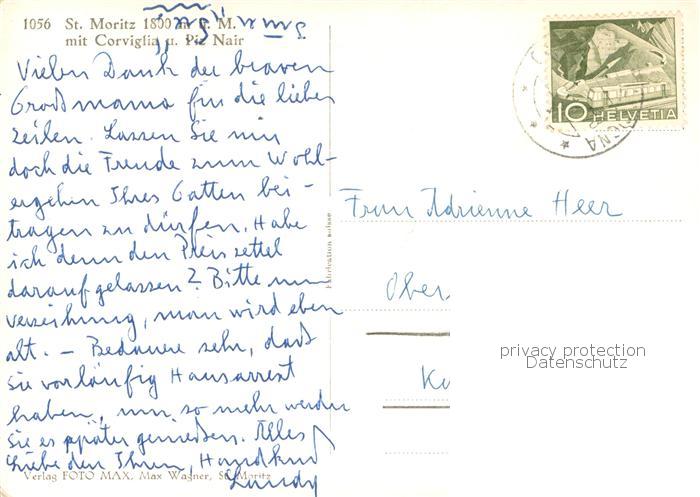 1056 St. Moritz 1800 m ü. M.
mit Corviglia u. Piz Nair
Vielen Dank der braven
Großmama für die lieben
Zeilen. Lassen Sie mir
doch die Freude zum Wohl-
ergehen Ihres Gatten bei-
tragen zu dürfen. Habe
ich denn den Preiszettel
darauf gelassen? Bitte um
Verzeihung, man wird eben
alt. – Bedaure sehr, daß
Sie vorläufig Hausarrest
haben, um so mehr werden
Sie es später genießen. Alles
Liebe den Ihren, Handkuß
Verlag FOTO MAX, Max Wagner, St. Moritz
Fabrication suisse
10 HELVETIA
Frau Adrienne Heer
Ober
privacy protection
Datenschutz